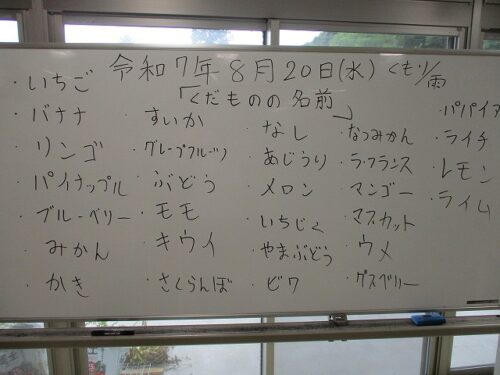 令和7年8月20日(水) くもり/雨
「くだものの名前」
・いちご
・バナナ
・リンゴ
・パイナップル
・ブルーベリー
・みかん
・かき
・すいか
・グレープフルーツ
・ぶどう
・モモ
・キウイ
・さくらんぼ
・なし
・あじうり
・メロン
・いちじく
・やまぶどう
・ビワ
・なつみかん
・ラ・フランス
・マンゴー
・マスカット
・ウメ
・グスベリー
・パパイア
・ライチ
・レモン
・ライム